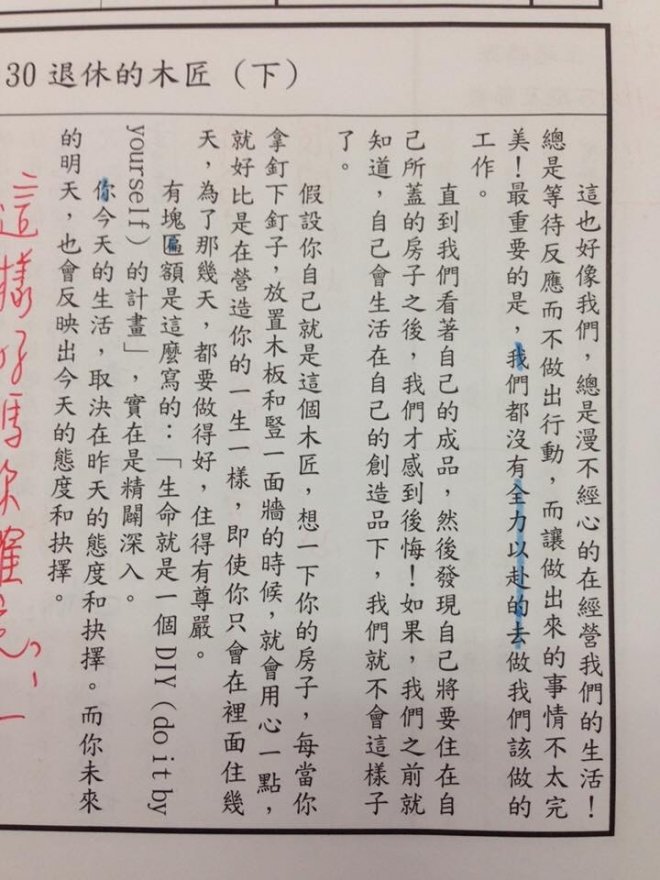 30 退休的木匠（下）
這也好像我們，總是漫不經心的在經營我們的生活！
總是等待反應而不做出行動，而讓做出來的事情不太完
美！最重要的是，我們都沒有全力以赴的去做我們該做的
工作。
直到我們看著自己的成品，然後發現自己將要住在自
己所蓋的房子之後，我們才感到後悔！如果，我們之前就
知道，自己會生活在自己的創造品下，我們就不會這樣子
了。
假設你自己就是這個木匠，想一下你的房子，每當你
拿釘下釘子，放置木板和豎一面牆的時候，就會用心一點，
就好比是在營造你的一生一樣，即使你只會在裡面住幾
天，為了那幾天，都要做得好，住得有尊嚴。
有塊匾額是這麼寫的：「生命就是一個 DIY（do it by
yourself）的計畫」，實在是精闢深入。
你今天的生活，取決在昨天的態度和抉擇。而你未來
的明天，也會反映出今天的態度和抉擇。
這樣好嗎你